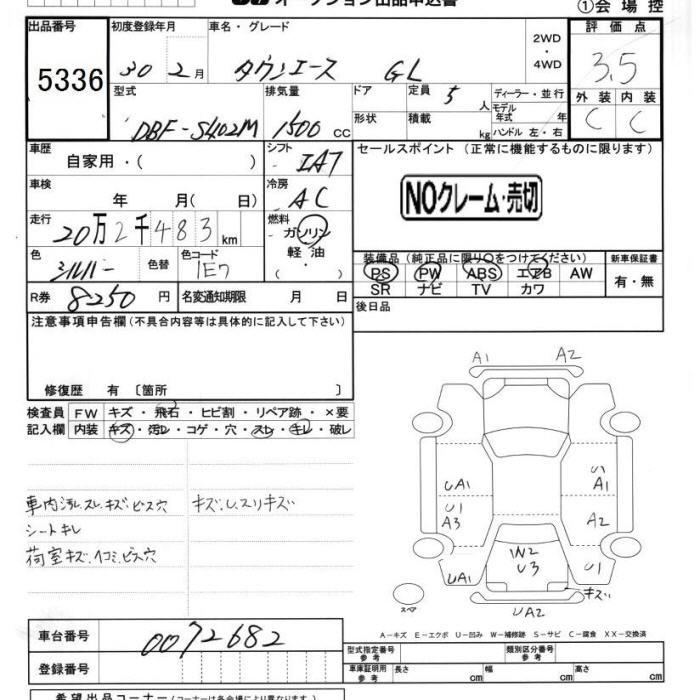 オークション出品申込書
①会場控
出品番号 初度登録年月 車名・グレード 2WD・4WD 評価点
5336 30 2月 タウンエース GL 3.5
型式 排気量 ドア 定員 5人 ディーラー・並行 外装 内装
DBF-S402M 1500cc 形状 積載 kg モデル年式 年 ハンドル 左・右 C C
車歴 自家用・( ) シフト IAT セールスポイント (正常に機能するものに限ります)
車検 年 月( 日) 冷房 AC NOクレーム・売切
走行 20万2千483km 燃料 ガソリン 軽油・
色 シルバー 色替 色コード 1E7 装備品(純正品に限り○をつけてください) 新車保証書
PS PW ABS エアB AW 有・無
SR ナビ TV カワ
R券 8250円 名変通知期限 月 日 後日品
注意事項申告欄(不具合内容等は具体的に記入して下さい)
修復歴 有 〔箇所 〕
検査員 FW キズ・飛石・ヒビ割・リペア跡・×要
記入欄 内装 キズ・汚レ・コゲ・穴・スレ・キレ・破レ
車内汚レ.スレ.キズ.ビス穴 キズ.U.スリキズ
シートキレ
荷室キズ.ヘコミ.ビス穴
A1 A2
UA1 A1
U1 A3 A2
W2
UA1 U3 U1
キズ
スペア UA2
A-キズ E-エクボ U-凹み W-補修跡 S-サビ C-腐食 XX-交換済
車台番号 0072682 型式指定番号 参考 類別区分番号 参考
登録番号 車庫証明用 参考 長さ cm 幅 cm 高さ cm
希望出品コーナー(コーナーは各会場により異なります。)